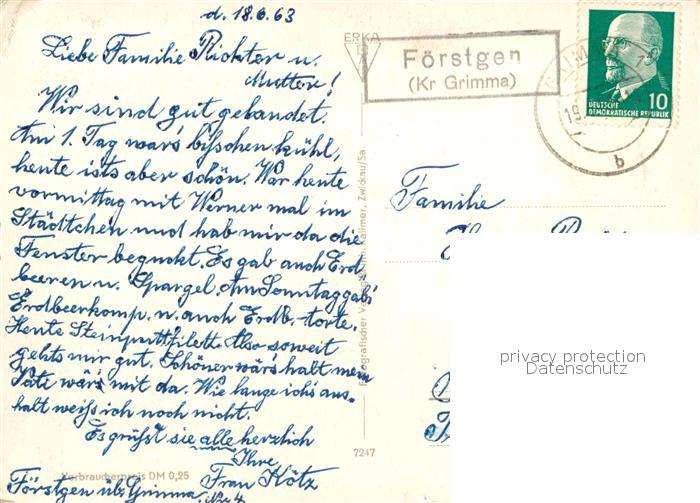 d. 18.6.63
Liebe Familie Richter u.
Mutter!
Wir sind gut gelandet.
Am 1. Tag wars bißchen kühl,
heute ists aber schön. War heute
vormittag mit Werner mal im
Städtchen und hab mir da die
Fenster beguckt. Es gab auch Erd
beeren u. Spargel. Am Sonntag gab's
Erdbeerkomp. u. auch Erdb.-torte.
Heute Steinbuttfilett. Also soweit
gehts mir gut. Schöner wärs halt wenn
Vati wär mit da. Wie lange ichs aus-
halt weiß ich noch nicht.
Es grüßt sie alle herzlich
Ihre
Frau Kötz
Förstgen üb. Grimma Nr. 4
Verbraucherpreis DM 0,25
ERKA
Zwickau/Sa.
7247
Förstgen
(Kr Grimma)
DEUTSCHE
DEMOKRATISCHE REPUBLIK
10
b
Familie
privacy protection
Datenschutz